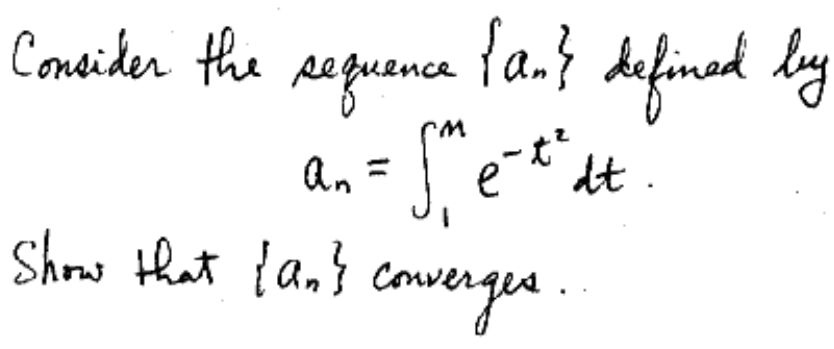 Consider the sequence {aₙ} defined by
aₙ = ∫₁ⁿ e^{-t²} dt.
Show that {aₙ} converges.